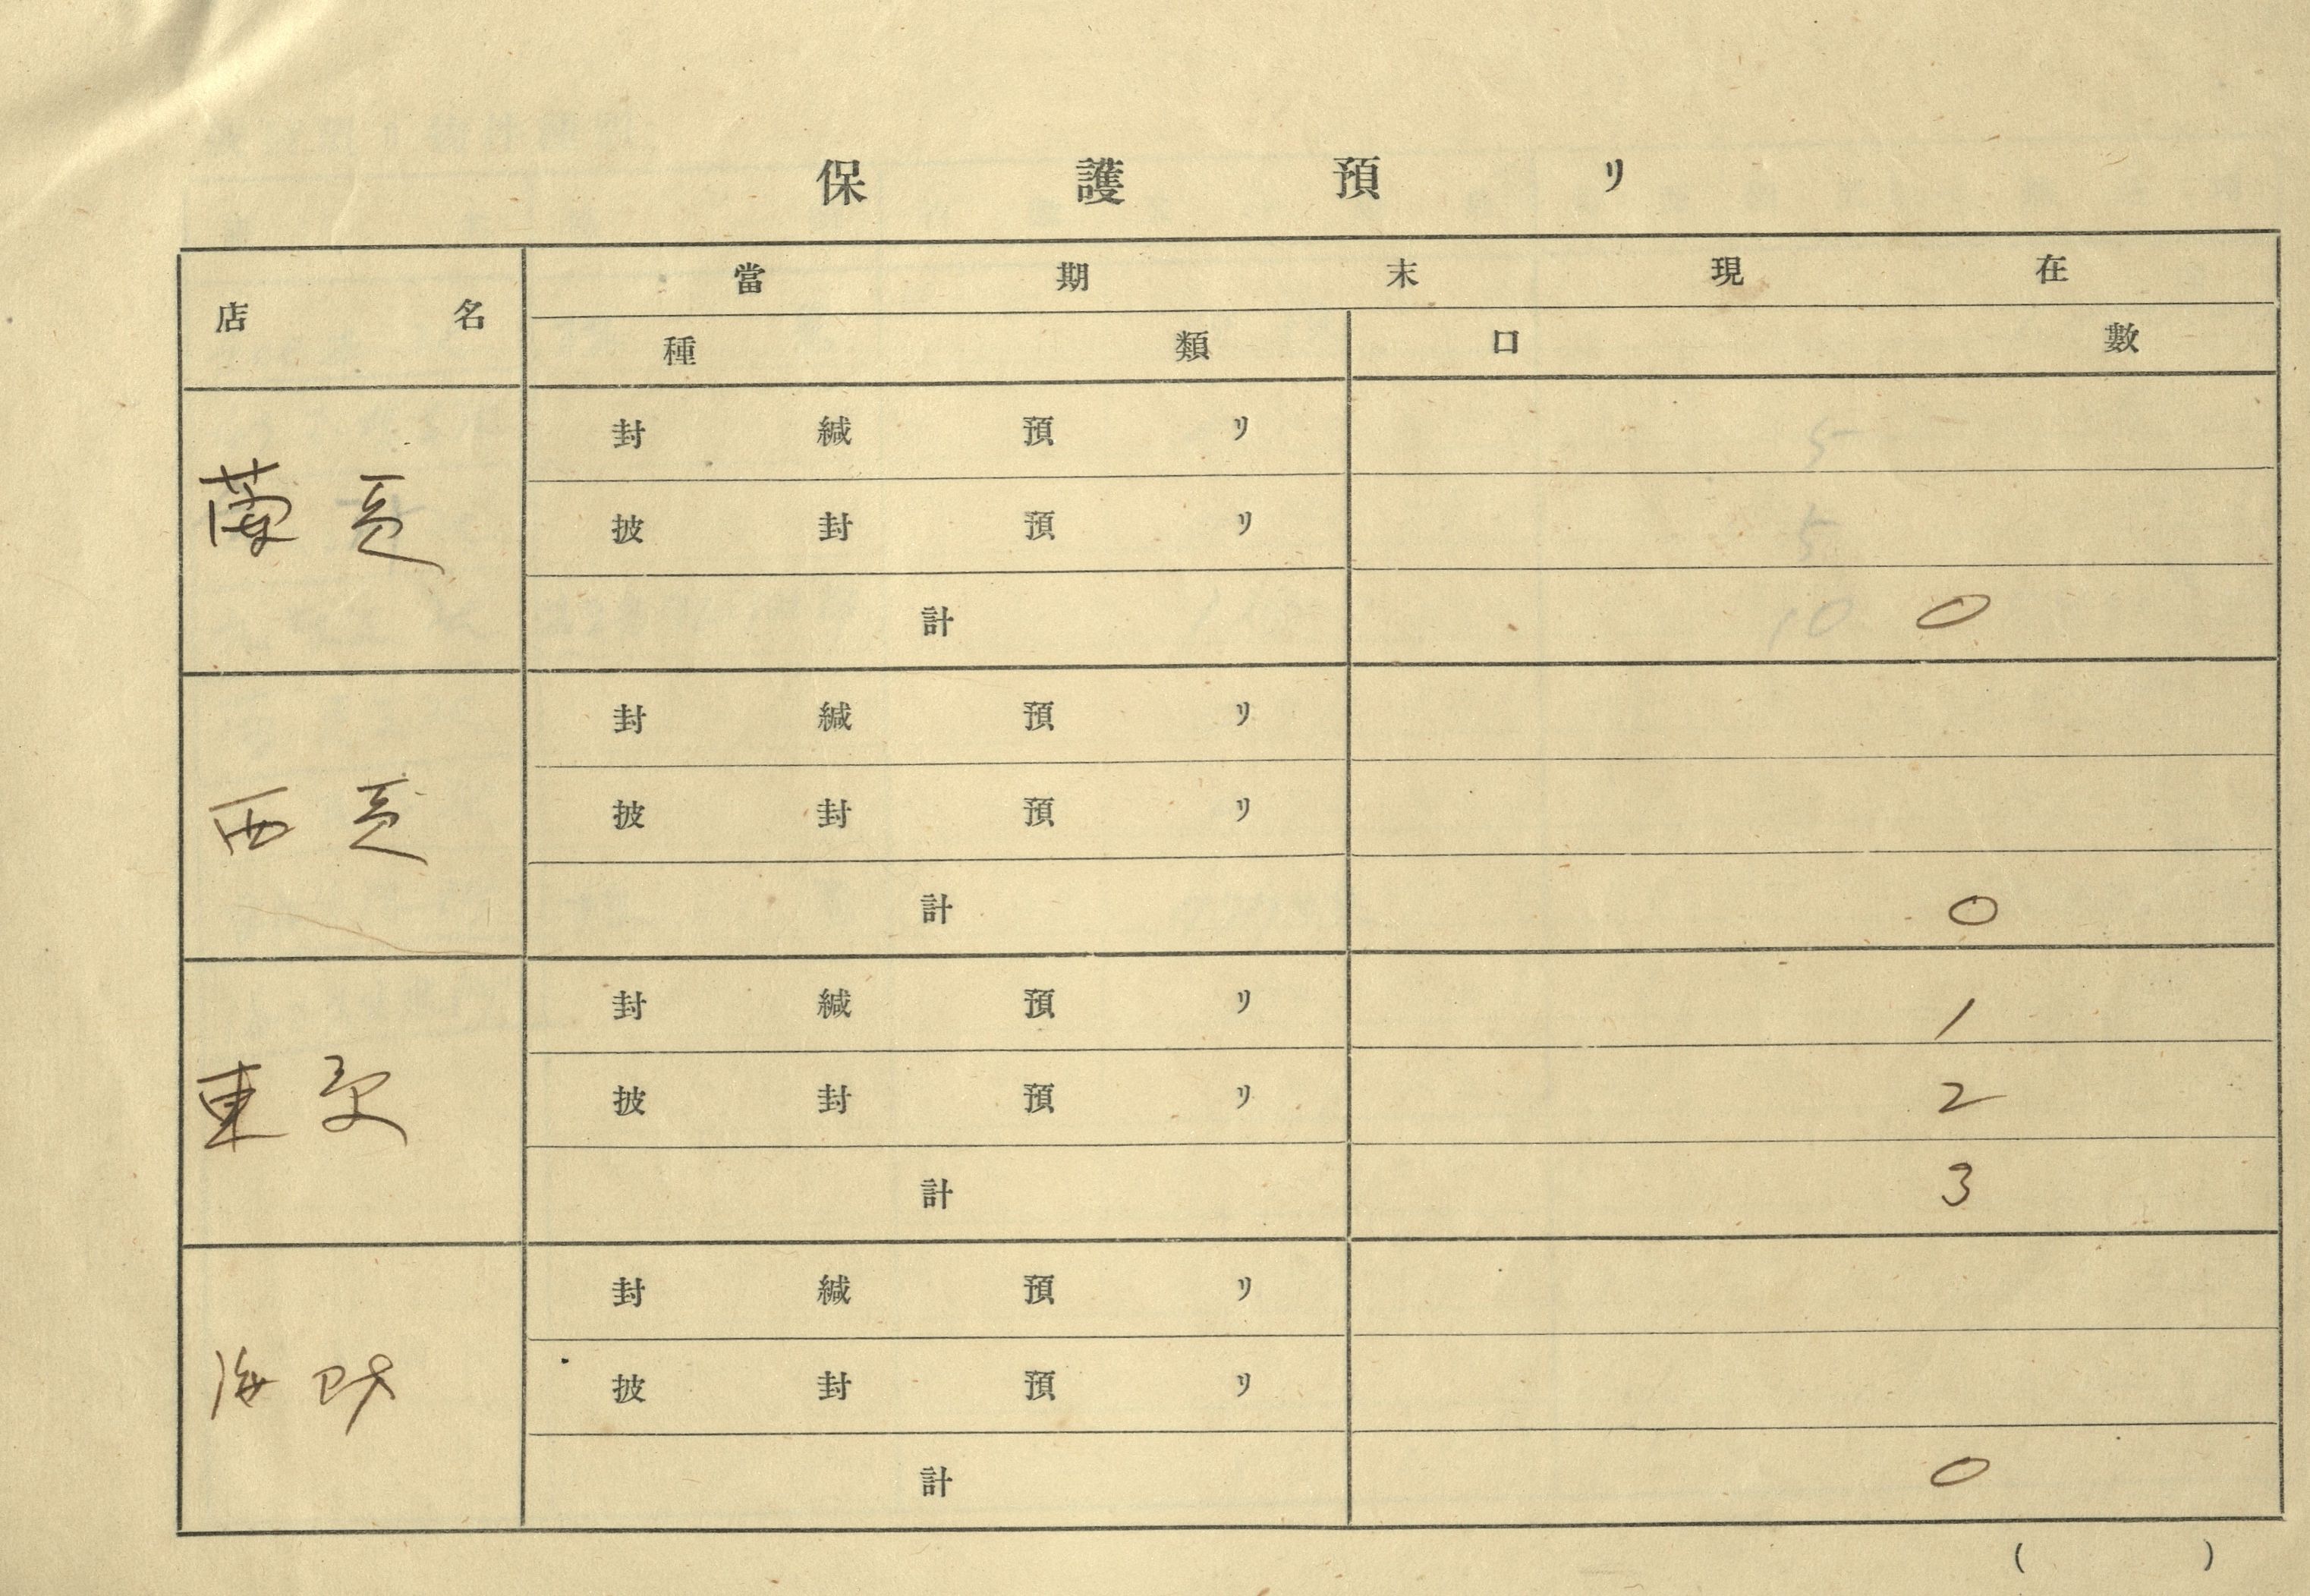 保護預リ
店名 當期末現在
種類 口數
封緘預リ 5
蘭貢 披封預リ 5
計 10 0
封緘預リ
西貢 披封預リ
計 0
封緘預リ 1
東 披封預リ 2
計 3
封緘預リ
海防 披封預リ
計 0
( )